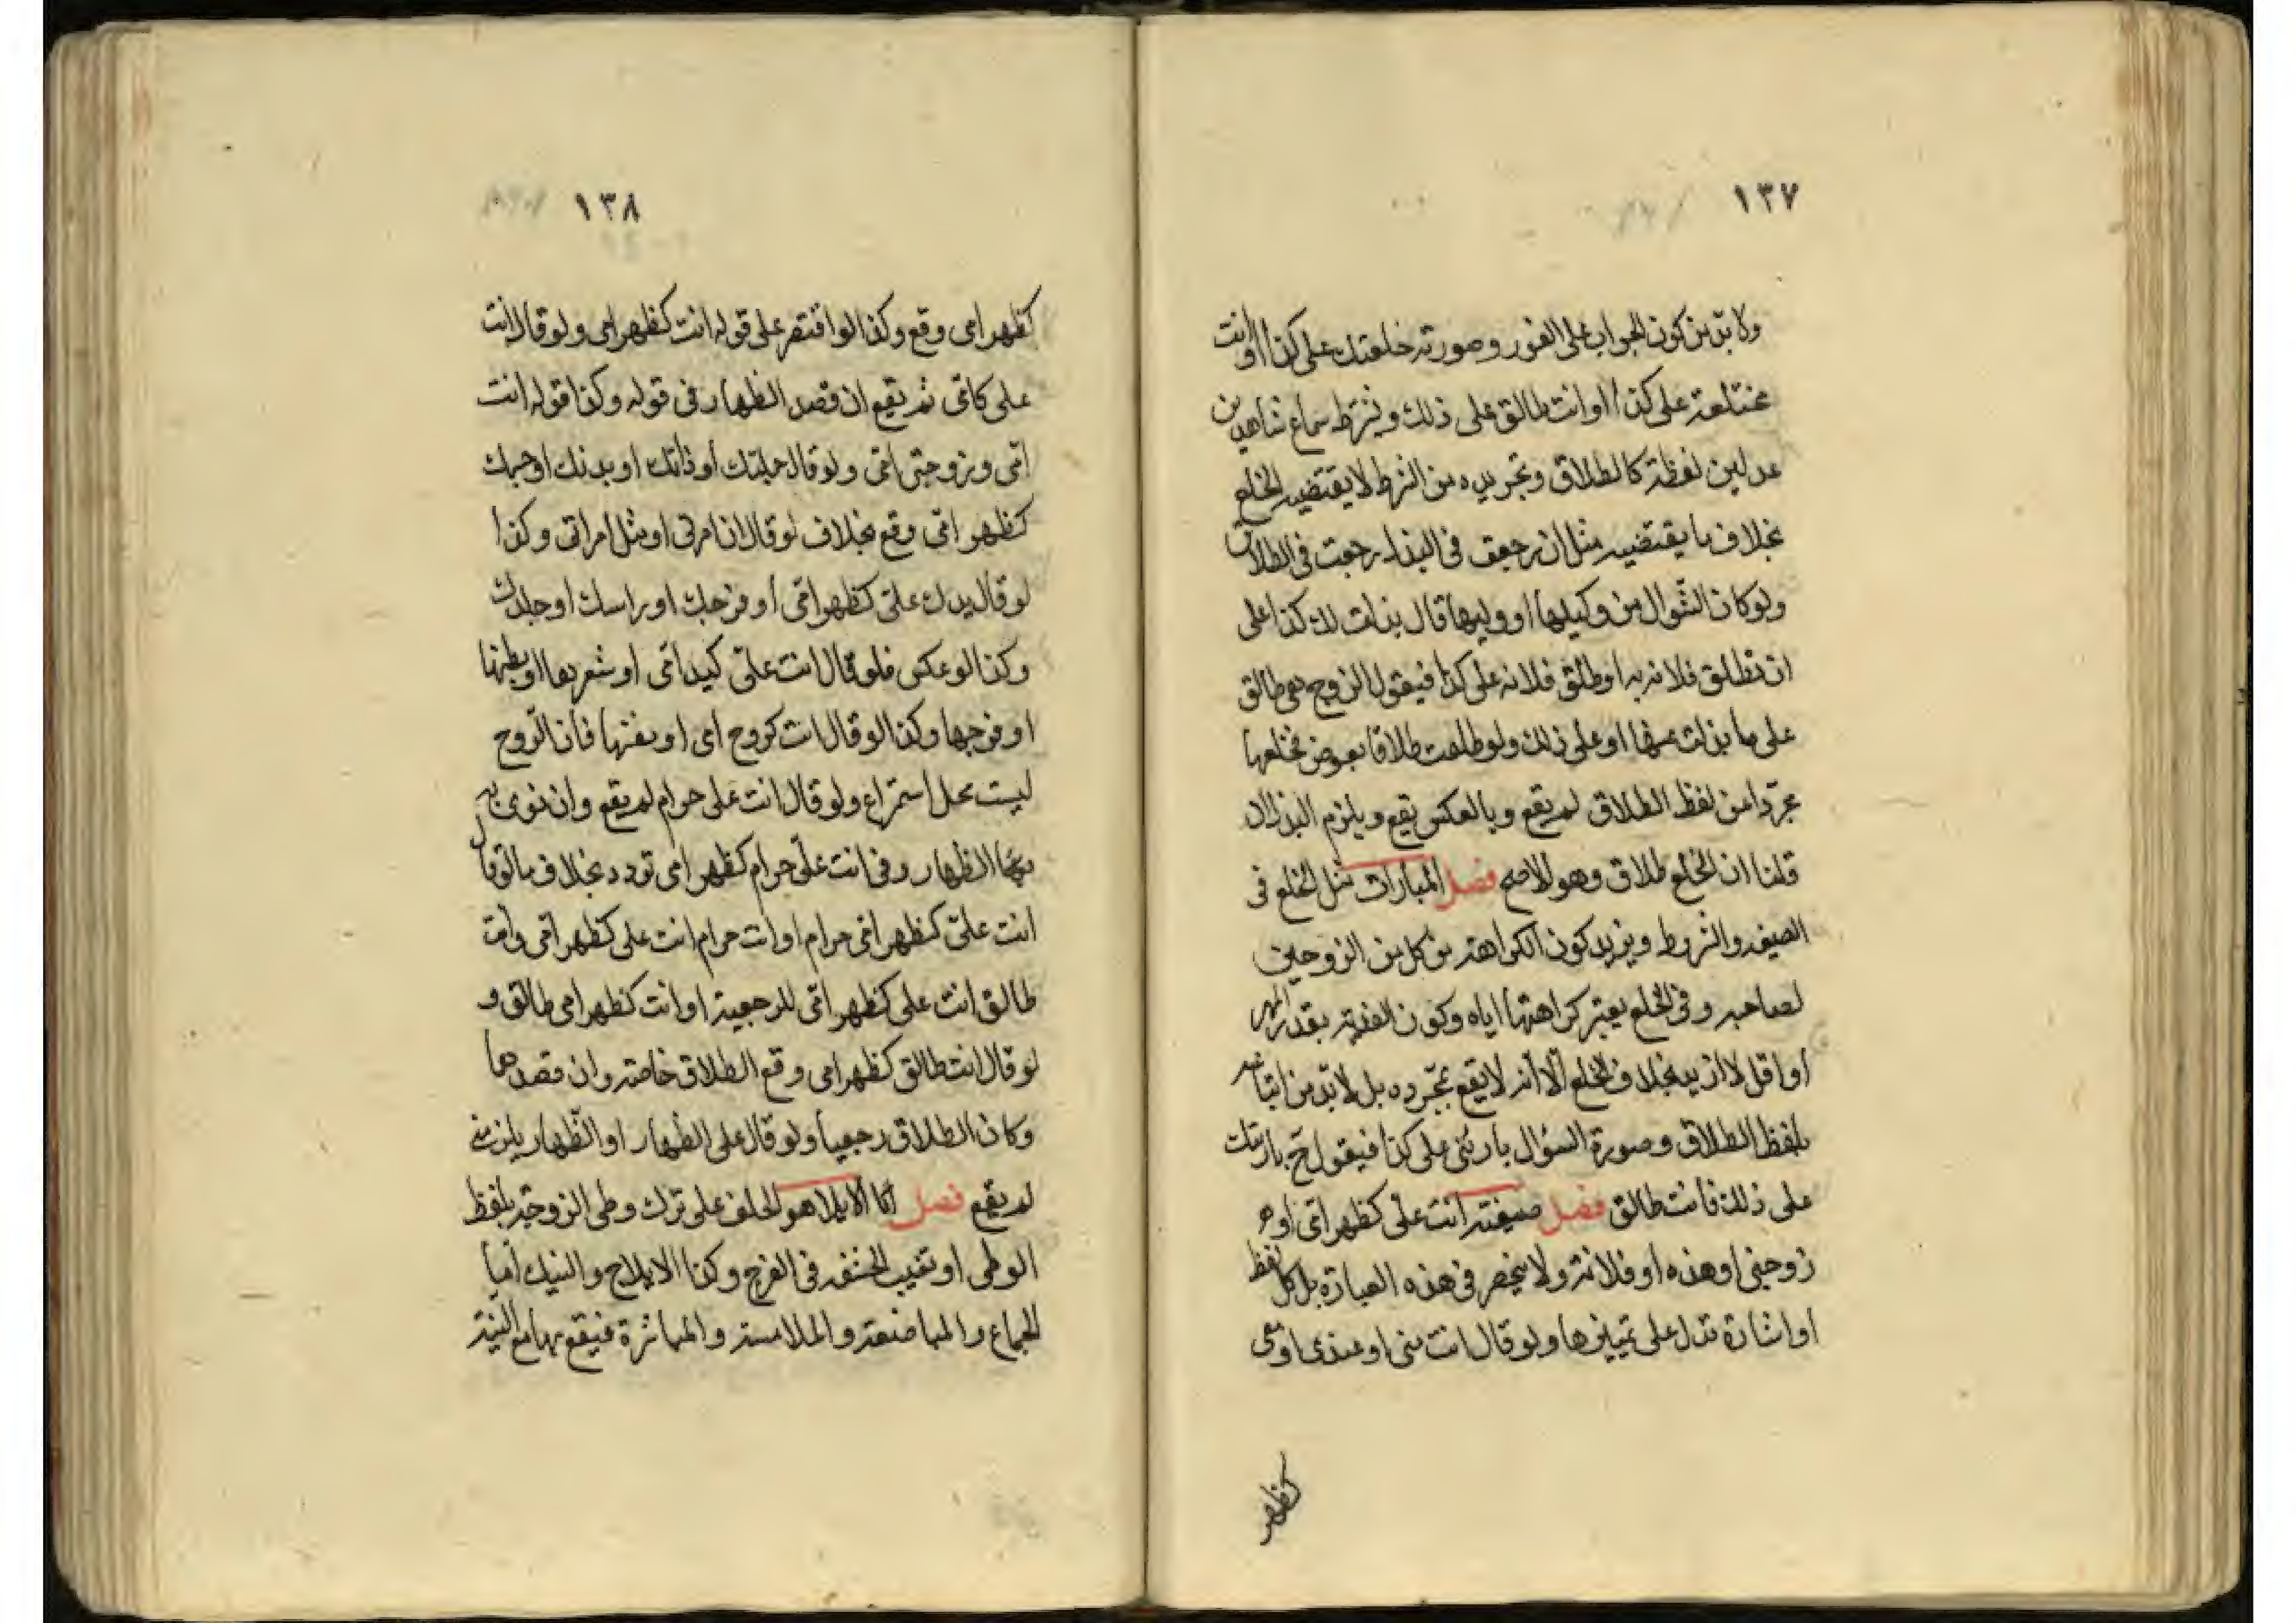 ١٣٧
ولا بد من كون الجواب على الفور وصورته خلعتك على كذا او انت
مختلعة على كذا او انت طالق على ذلك ويشترط سماع شاهدين
عدلين لفظه كالطلاق وتجريده من الشرط لا يقتضيه الخلع
بخلاف ما يقتضيه مثل ان رجعت في البذل رجعت في الطلاق
ولو كان السؤال من وكيلها او وليها قال بذلت لك كذا على
ان تطلق فلانه به او طلق فلانه على كذا فيقول الزوج هي طالق
على ما بذلت عنها او على ذلك ولو طلبت طلاقا بعوض فخلعها
مجردا من لفظ الطلاق لم يقع وبالعكس يقع ويلزم البذل ان
قلنا ان الخلع طلاق وهو الاصح فصل المبارات مثل الخلع في
الصيغه والشروط ويزيد كون الكراهة من كل من الزوجين
لصاحبه وفي الخلع يعتبر كراهتها اياه وكون الفدية بقدر المهر
او اقل لا ازيد بخلاف الخلع الا انه لا يقع بمجرده بل لا بد من اتباعه
بلفظ الطلاق وصورة السؤال بارئني على كذا فيقول ح بارئتك
على ذلك فانت طالق فصل صيغته انت علي كظهر امي او
زوجتي او هذه او فلانة ولا ينحصر في هذه العبارة بل كل لفظ
او اشارة تدل على تميزها ولو قال انت مني او عندي او معي
كظهر
١٣٨
كظهر امي وقع وكذا لو اقتصر على قوله انت كظهر امي ولو قال انت
على كامي لم يقع ان قصد الظهار في قوله وكذا قوله انت
امي وزوجتي امي ولو قال جملتك او ذاتك او بدنك او جسمك
كظهر امي وقع بخلاف لو قال ان امي او مثل امراتي وكذا
لو قال يدك علي كظهر امي او فرجك او راسك او جلدك
وكذا لو عكس فلو قال انت علي كيد امي او شعرها او بطنها
او فرجها وكذا لو قال انت كروح امي او نفسها فان الروح
ليست محل استمتاع ولو قال انت على حرام لم يقع وان نوى به
بهما الظهار وفي انت علي حرام كظهر امي تردد بخلاف ما لو قال
انت علي كظهر امي حرام او انت حرام انت على كظهر امي وانت
طالق انت على كظهر امي للرجعية او انت كظهر امي طالق و
لو قال انت طالق كظهر امي وقع الطلاق خاصة وان قصدهما
وكان الطلاق رجعيا ولو قال على الظهار او الظهار يلزمني
لم يقع فصل اما الايلا هو الحلف على ترك وطي الزوجة بلفظ
الوطي او تغيب الحشفه في الفرج وكذا الايلاج والنيك اما
الجماع والمباضعة والملامسة والمباشرة فيقع بها مع النية